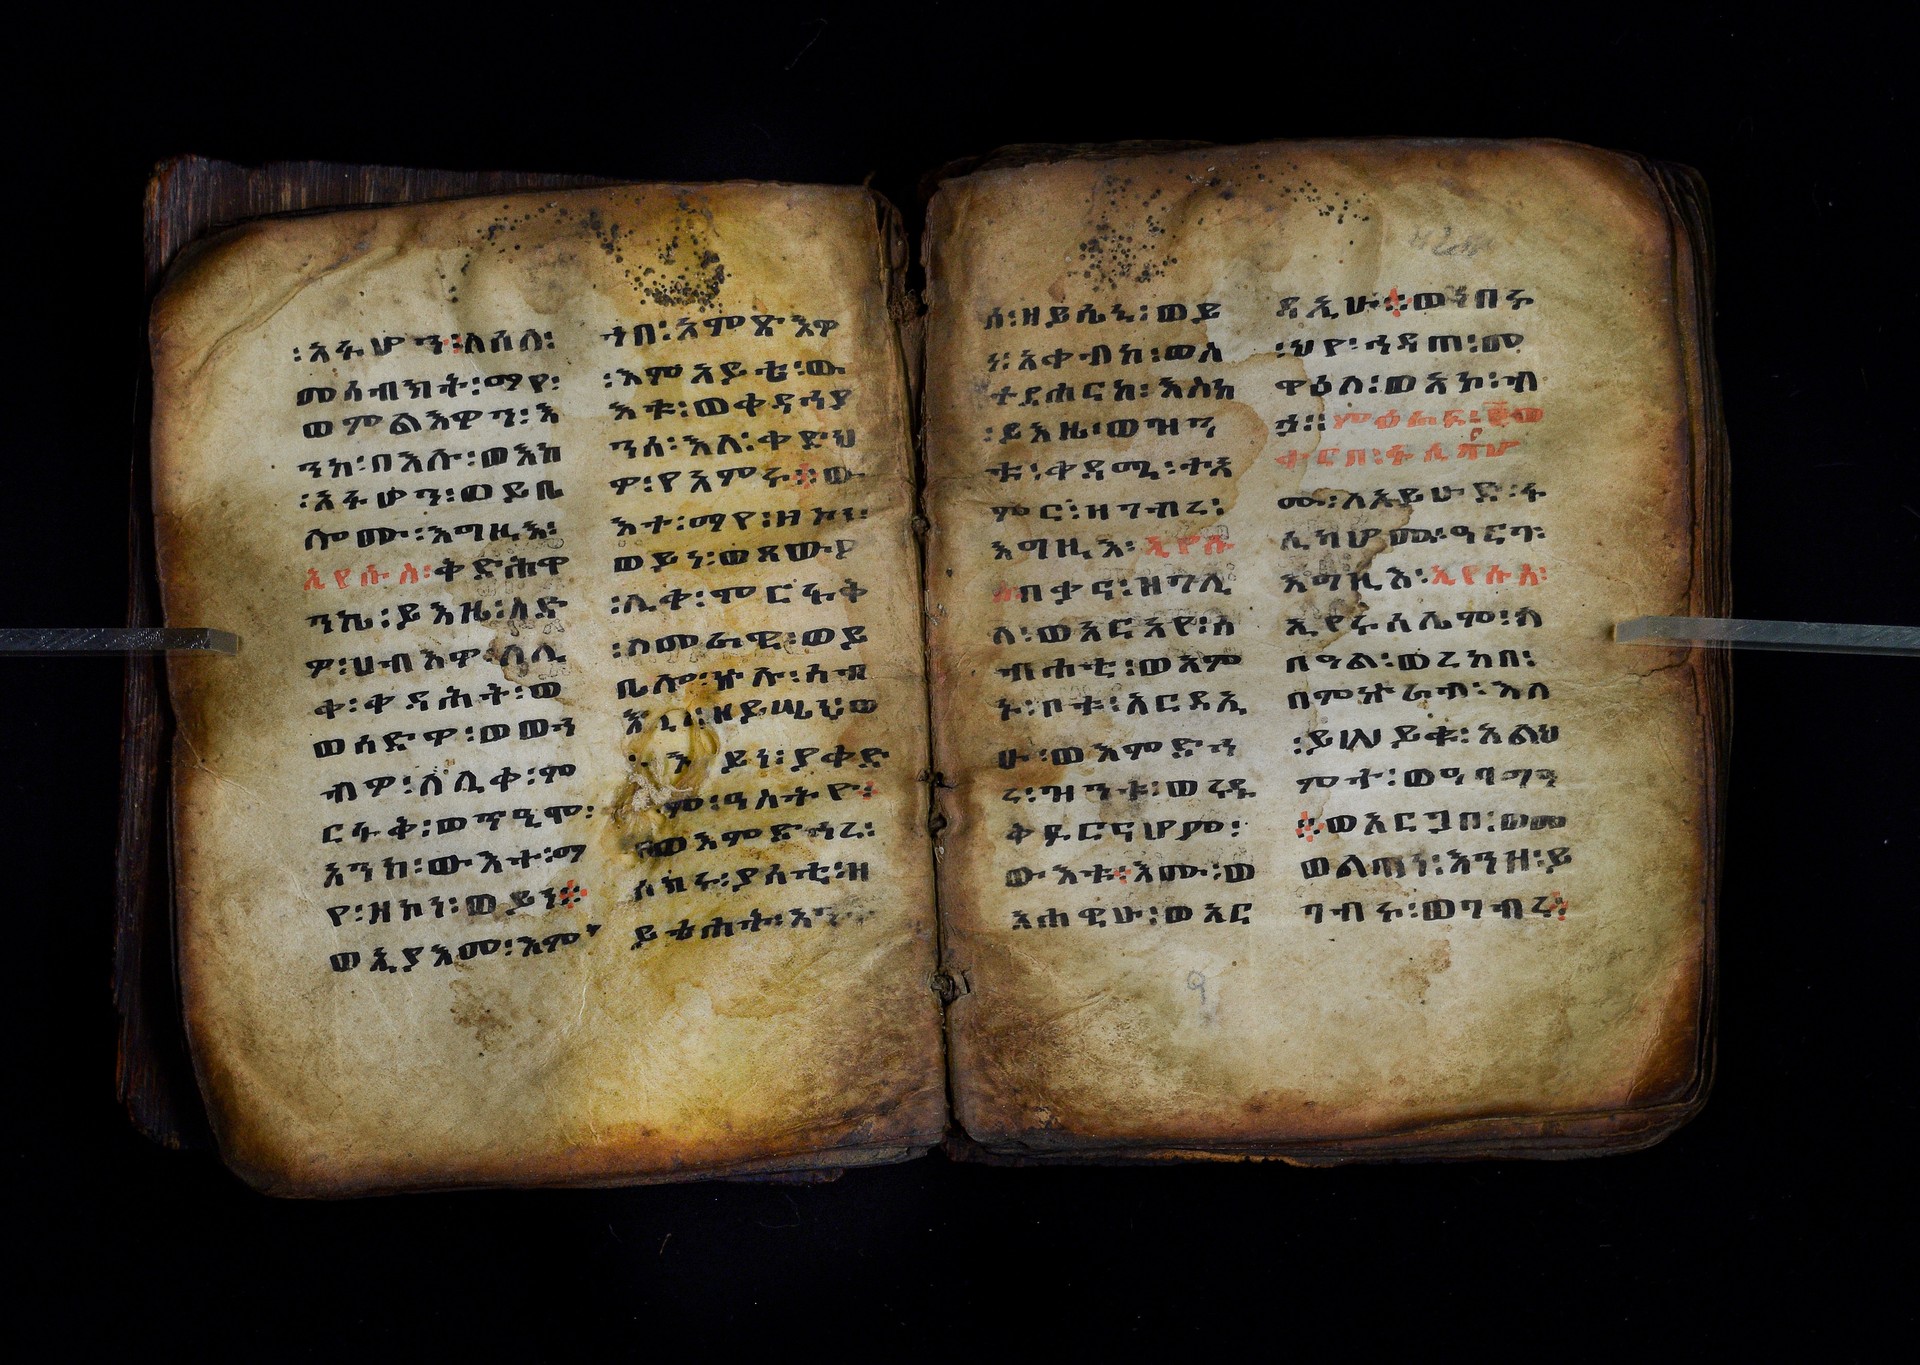 ፡አፋሆን፡ለለለ፡
መሳብክት፡ማየ፡
ወምልእዎን፡እ
ንከ፡በእሉ፡ወእከ
፡አፋሆን፡ወይቤ
ሎሙ፡እግዚእ፡
ኢየሱስ፡ቅድሕዋ
ንኬ፡ይእዜ፡ለድ
ዎ፡ሀብእዎ፡ለሊ
ቀ፡ቀዳሕት፡ወ
ወሰድዎ፡ወወን
ብዎ፡ለሊቀ፡ም
ርፋቅ፡ወጥዒሞ፡
አንከ፡ውእተ፡ማ
የ፡ዘኮነ፡ወይነ፨
ወኢያእመ፡እም
ኀበ፡አምጽእዎ
፡እምአይቴ፡ው
እቱ፡ወቀዳሕያ
ንሰ፡እለ፡ቀድህ
ዎ፡የአምሩ፨ው
እተ፡ማየ፡ዘኮነ፡
ወይነ፡ወጸውዖ
፡ሊቀ፡ምርፋቅ
፡ለመራዊ፡ወይ
ቤሎ፡ኵሉ፡ሰብ
ዘይሤኒ፡ወ
ይነ፡ያቀድ
ም፡ዓስትዮ፡
ወእምድኅረ፡
ሰክሩ፡ያሰቲ፡ዘ
ይቴሐት፡አን
ሰ፡ዘይሤኒ፡ወይ
ነ፡አቀብከ፡ወለ
ተደሐርከ፡እስከ
፡ይእዜ፡ወዝን
ቱ፡ቀዳሚ፡ተአ
ምር፡ዘገብረ፡
እግዚእ፡ኢየሱ
ስ፡በቃና፡ዝገሊ
ላ፡ወአርአየ፡ስ
ብሐቲ፡ወአም
ኑ፡ቦቱ፡አርዳኢ
ሁ፡ወእምድኅ
ረ፡ዝንቱ፡ወረደ
ቅፍርናሆም፡
ውእቱ፡እሙ፡ወ
አሐዊሁ፡ወአር
ዳኢሁ፨ወነበሩ
፡ህየ፡ኅዳጠ፡መ
ዋዕለ፡ወአኮ፡ብ
ምዕራፍ፡፪ወ
ቀርበ፡ፋሲካሆ
ሙ፡ለአይሁድ፡ፋ
ሲካሆሙ፡ዓርገ፡
እግዚእ፡ኢየሱስ፡
ኢየሩሳሌም፡ለ
በዓል፡ወረከበ፡
በምኵራብ፡እለ
፡ይሠይጡ፡አልህ
ምተ፡ወዓባግዓ
፨ወአርግበ፡ወመ
ወልጣነ፡እንዘ፡ይ
ገብሩ፡ወገብረ፡